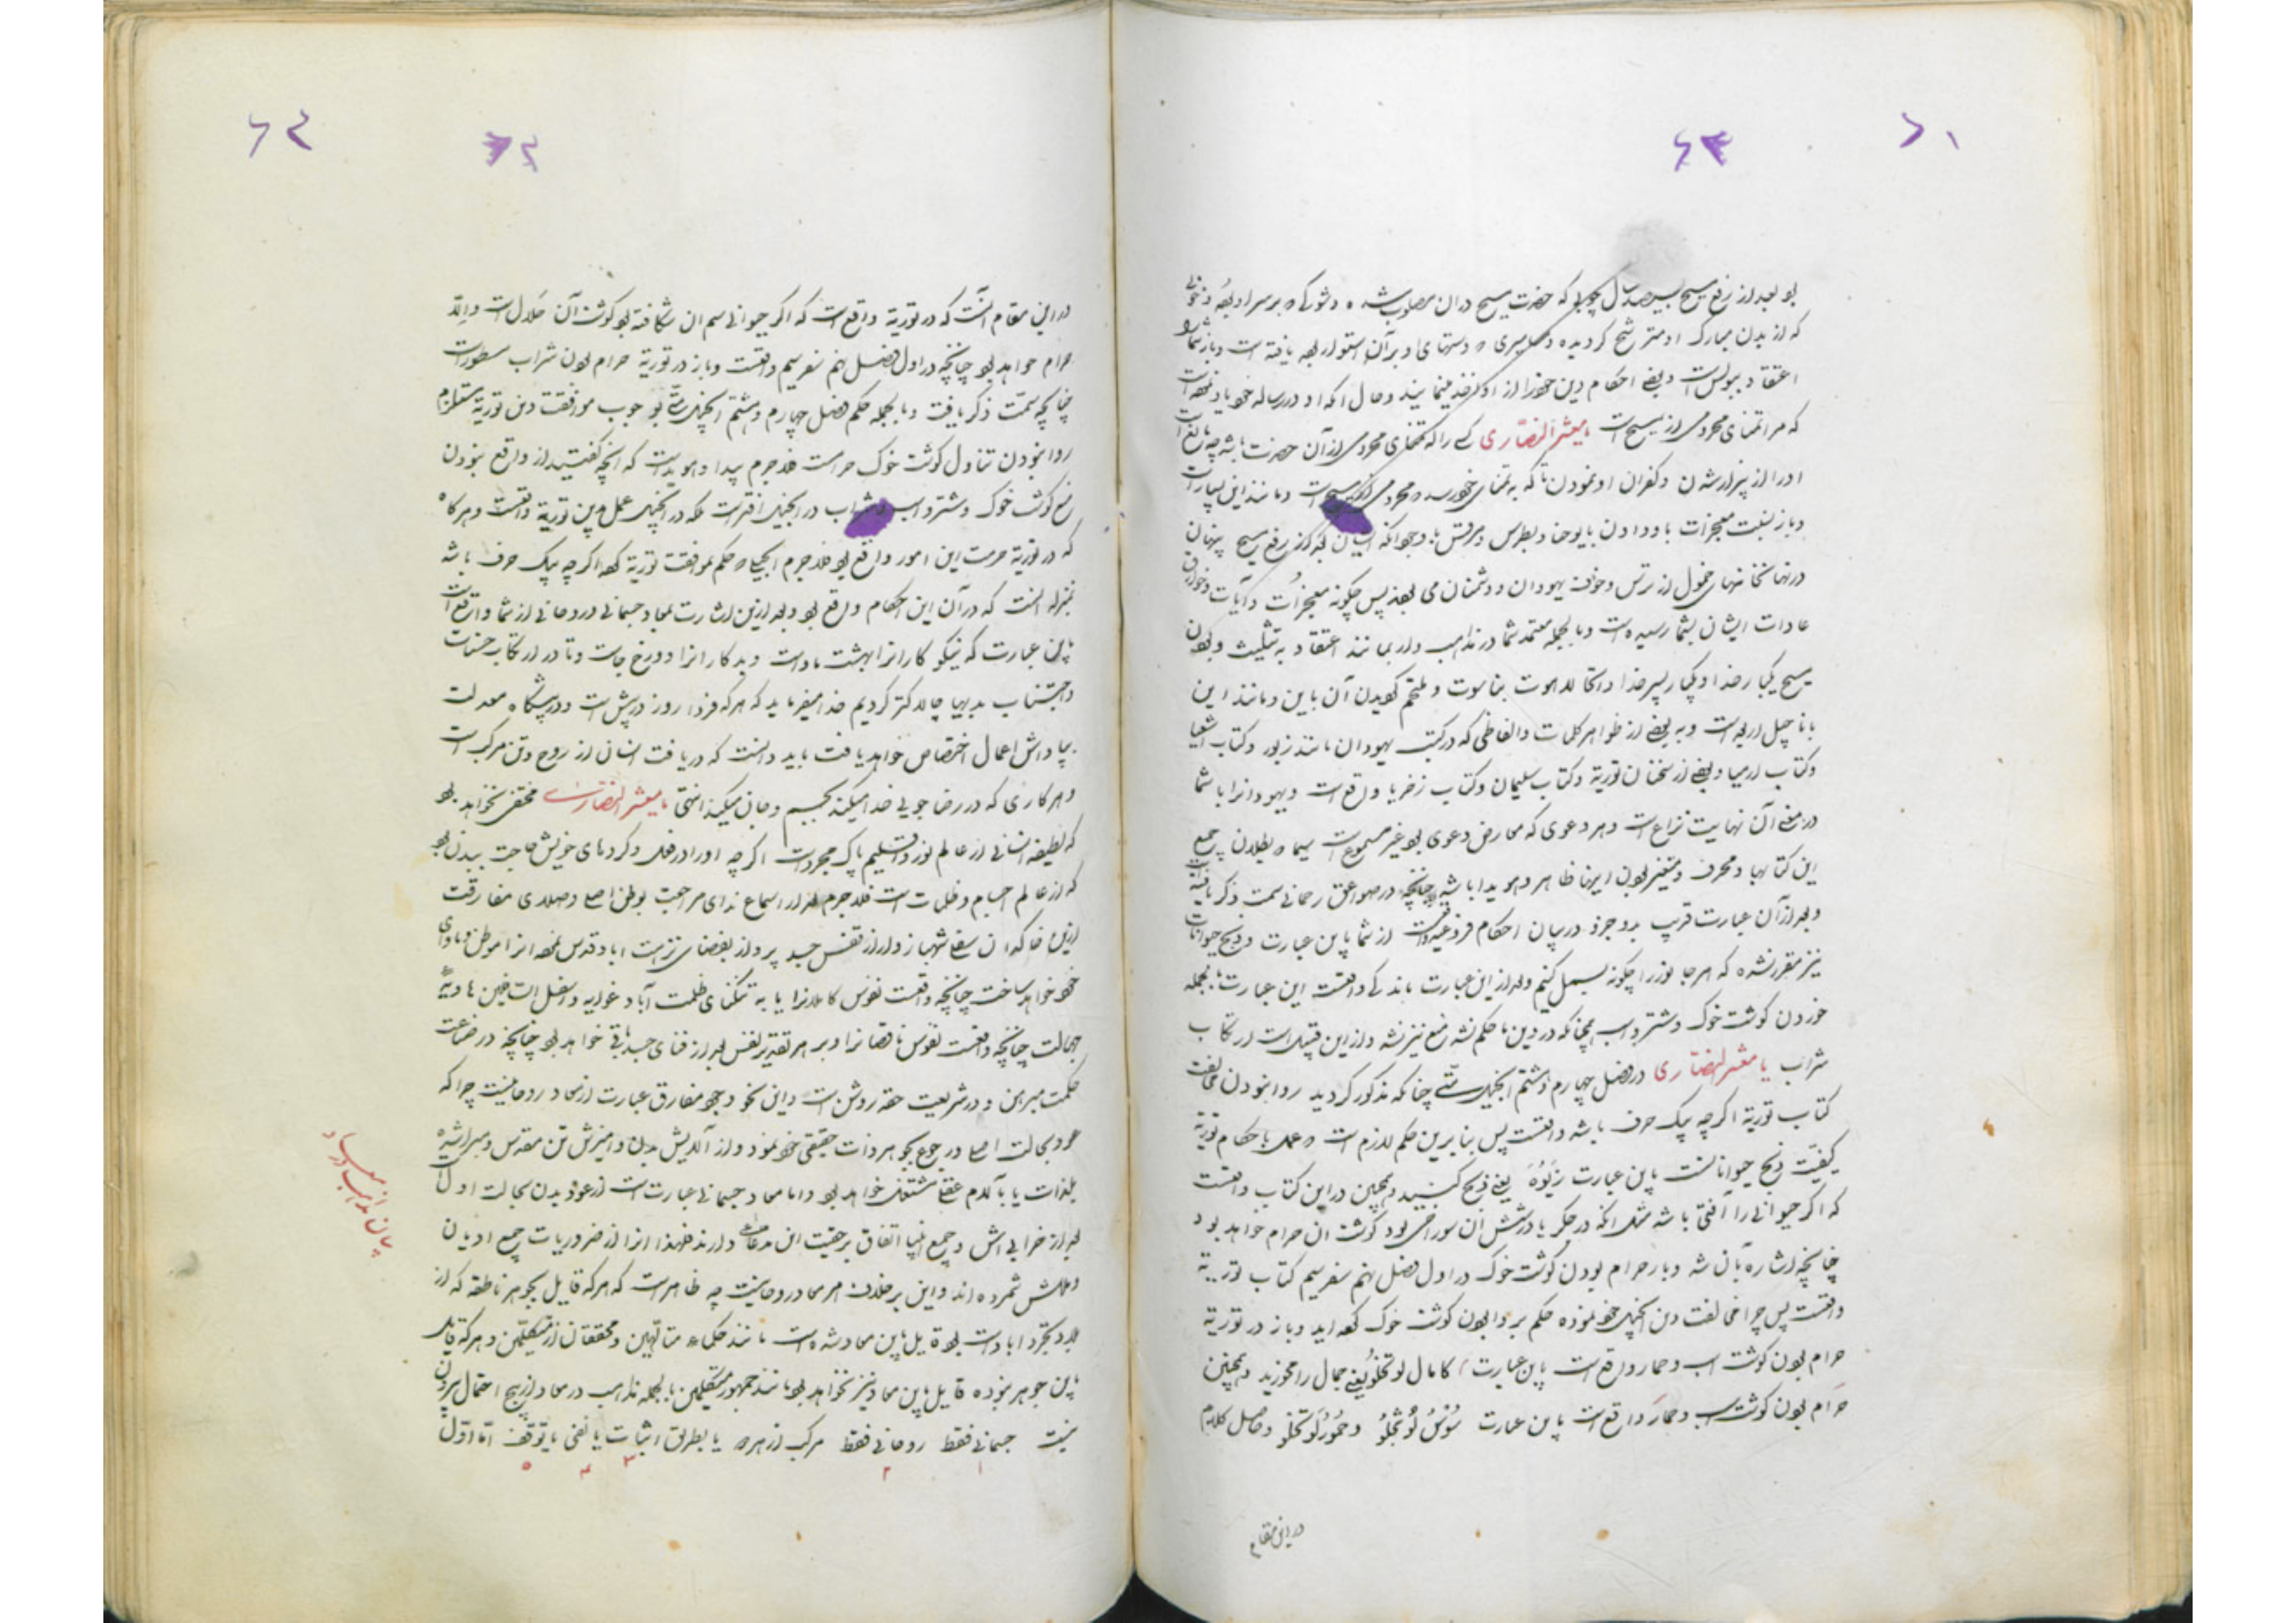 ۶۱
۶۳
بود بعد از رفع مسیح بسیصد سال چوبی که حضرت مسیح در ان مصلوب شده و شوکی که بر سر او بوده و خونی
که از بدن مبارک او مترشح کردیده و دستهای او بر آن استوار بوده یافته است و باز شما را
اعتقاد ببولس است و بعضی احکام دین خود را از او اخذ مینمایند و حال انکه او در رساله خود یاد نموده است
که مرا تمنای محرومی از مسیح است یا معشر النصاری کسی را که تمنای محرومی از آن حضرت باشد چه
او را از پیزار شدن و کفران او نمودن تا که به تمنای خود رسد و محرومی از مسیح است و مانند این بسیار است
و باز نسبت معجزات باو دادن یا یوحنا و بطرس و مرقس با وجود انکه ایشان بعد از رفع مسیح پنهان
در نهانخانهای خمول از ترس و خوف یهودان و دشمنان می بودند پس چکونه معجزات و آیات و خوارق
عادات ایشان بشما رسیده است و بالجمله معتمد شما در مذاهب و اراء مانند اعتقاد به تثلیث و بودن
مسیح یکبار خدا و یکبار پسر خدا و اتحاد لاهوت بناسوت و ملتحم کردیدن آن باین و مانند این
باناجیل اربعه است و به بعضی از ظواهر کلمات و الفاظی که در کتب یهودان مانند زبور و کتاب اشعیا
و کتاب ارمیا و بعضی از سخنان توریة و کتاب سلیمان و کتاب زخریا واقع است و یهود انرا با شما
در معنی آن نهایت نزاع است و هر دعوی که معارض دعوی بود غیر مسموع است سیما و بطلان جمیع
این کتابها و محرف و متغیر بودن اینها ظاهر و هویدا باشد چنانچه در صواعق رحمانی سمت ذکر یافته
و بعد از آن عبارت قریب بدو جزو در بیان احکام فروعیه واقعست از شما باین عبارت و ذبح حیوانات
نیز مقرر نشده که هر جانور را چکونه بسمل کنیم و بعد از این عبارت باندکی واقعست این عبارت بالجمله
خوردن کوشت خوک و شتر و اسب چنانکه در دین ما حکم نشد منع نیز نشد و از این قبیل است ارتکاب
شراب یا معشر النصاری در فصل چهارم و هشتم انجیل متی چنانکه مذکور کردید روا نبودن مخالفت
کتاب توریة اکرچه بیک حرف باشد واقعست پس بنا برین حکم لازم است و عمل باحکام توریة
کیفیت ذبح حیوانات باین عبارت یعنی ذبح کنید و همچنین در این کتاب واقعست
که اکر حیوانی را آفتی باشد مثل انکه در جکر یا در شش ان سوراخی بود کوشت ان حرام خواهد بود
چنانچه اشاره بآن شد و باز حرام بودن کوشت خوک در اول فصل نهم سفر سیم کتاب توریة
واقعست پس چرا مخالفت دین انجیل خود نموده حکم بروا بودن کوشت خوک کرده اید و باز در توریة
حرام بودن کوشت اسب و حمار واقع است باین عبارت کامال لو تخلو یعنی جمال را مخورید و همچنین
حرام بودن کوشت اسب و حمار واقع است باین عبارت سوس لو تخلو و حمور لو تخلو و حاصل کلام
در این مقام
۶۲
۶۴
در این مقام آنست که در توریة واقع است که اکر حیوانی سم ان شکافته بود کوشت آن حلال است و الا
حرام خواهد بود چنانچه در اول فصل نهم سفر سیم واقعست و باز در توریة حرام بودن شراب مسطور است
چنانچه سمت ذکر یافت و بالجمله حکم فصل چهارم و هشتم انجیل متی بوجوب موافقت دین توریة مستلزم
روا نبودن تناول کوشت خوک و حرامست فلاجرم پیدا و هویداست که انچه کفتید از واقع نبودن
منع کوشت خوک و شتر و اسب و شراب در انجیل افتراست بلکه در انجیل عمل بدین توریة واقعست و هرکاه
که در توریة حرمت این امور واقع بود فلاجرم انجیل که حکم بموافقت توریة کند اکرچه بیک حرف باشد
بمنزله آنست که در آن این احکام واقع بود و بعد از این اشارت بمعاد جسمانی و روحانی از شما واقع است
باین عبارت که نیکوکارانرا بهشت ماواست و بدکارانرا دوزخ جاست و تا در ارتکاب حسنات
و اجتناب بدیها چالاکتر کردیم خدا میفرماید که هرکه فردا روز در پیش است و در پیشکاه معدلت
بپاداش اعمال اختصاص خواهد یافت باید دانست که دریافت انسان از روح و تن مرکب است
و هر کاری که در رضاجویی خدا میکند بجسم و جان میکند انتهی یا معشر النصاری مخفی نخواهد بود
که لطیفه انسانی از عالم نور و اقلیم پاک مجرداست اکرچه او را در فعل و کردهای خویش حاجت ببدن بود
که از عالم اجسام و ظلمات است فلاجرم بعد از اسماع ندای مراجعت بوطن اصلی و صلای مفارقت
ازین خاکدان سفلی شهباز وار از قفس جسد پرواز بفضای نزهت اباد قدس نموده انرا موطن و ماوای
خود خواهد ساخت چنانچه واقعست نفوس کاملانرا یا به تنکنای ظلمت آباد غوایه و اسفل السافلین هاویه
جهالت چنانچه واقعست نفوس ناقصانرا و بر هر تقدیر نفس بعد از فنای جسد باقی خواهد بود چنانچه در صناعت
حکمت مبرهن و در شریعت حقه روشن است و این نحو وجود مفارق عبارت از معاد روحانیست چرا که
عود بحالت اصلی و رجوع بجوهر ذات حقیقی خود نمود و از آلایش بدن و امیزش تن مقدس و مبرا شده
بلذات یا بآلام عقلی مشتغل خواهد بود و اما معاد جسمانی عبارت است از عود بدن بحالت اول
بعد از خرابی اش و جمیع انبیا اتفاق بر حقیت این مدعا دارند فلهذا انرا از ضروریات جمیع ادیان
و ملل شمرده اند و این بر خلاف امر معاد روحانیست چه ظاهر است که هرکه قایل بجوهر ناطقه که از
بلاد تجرد اباد است بود قایل باین معاد شده است مانند حکماء متالهین و محققان از متکلمین و هرکه قایل
باین جوهر نبوده قایل باین معاد نیز نخواهد بود مانند جمهور متکلمین بالجمله مذاهب در معاد از پنج احتمال بیرون
نیست جسمانی فقط روحانی فقط مرکب از هر دو یا بطریق اثبات یا نفی یا توقف اما اول
۱ ۲ ۳ ۴ ۵